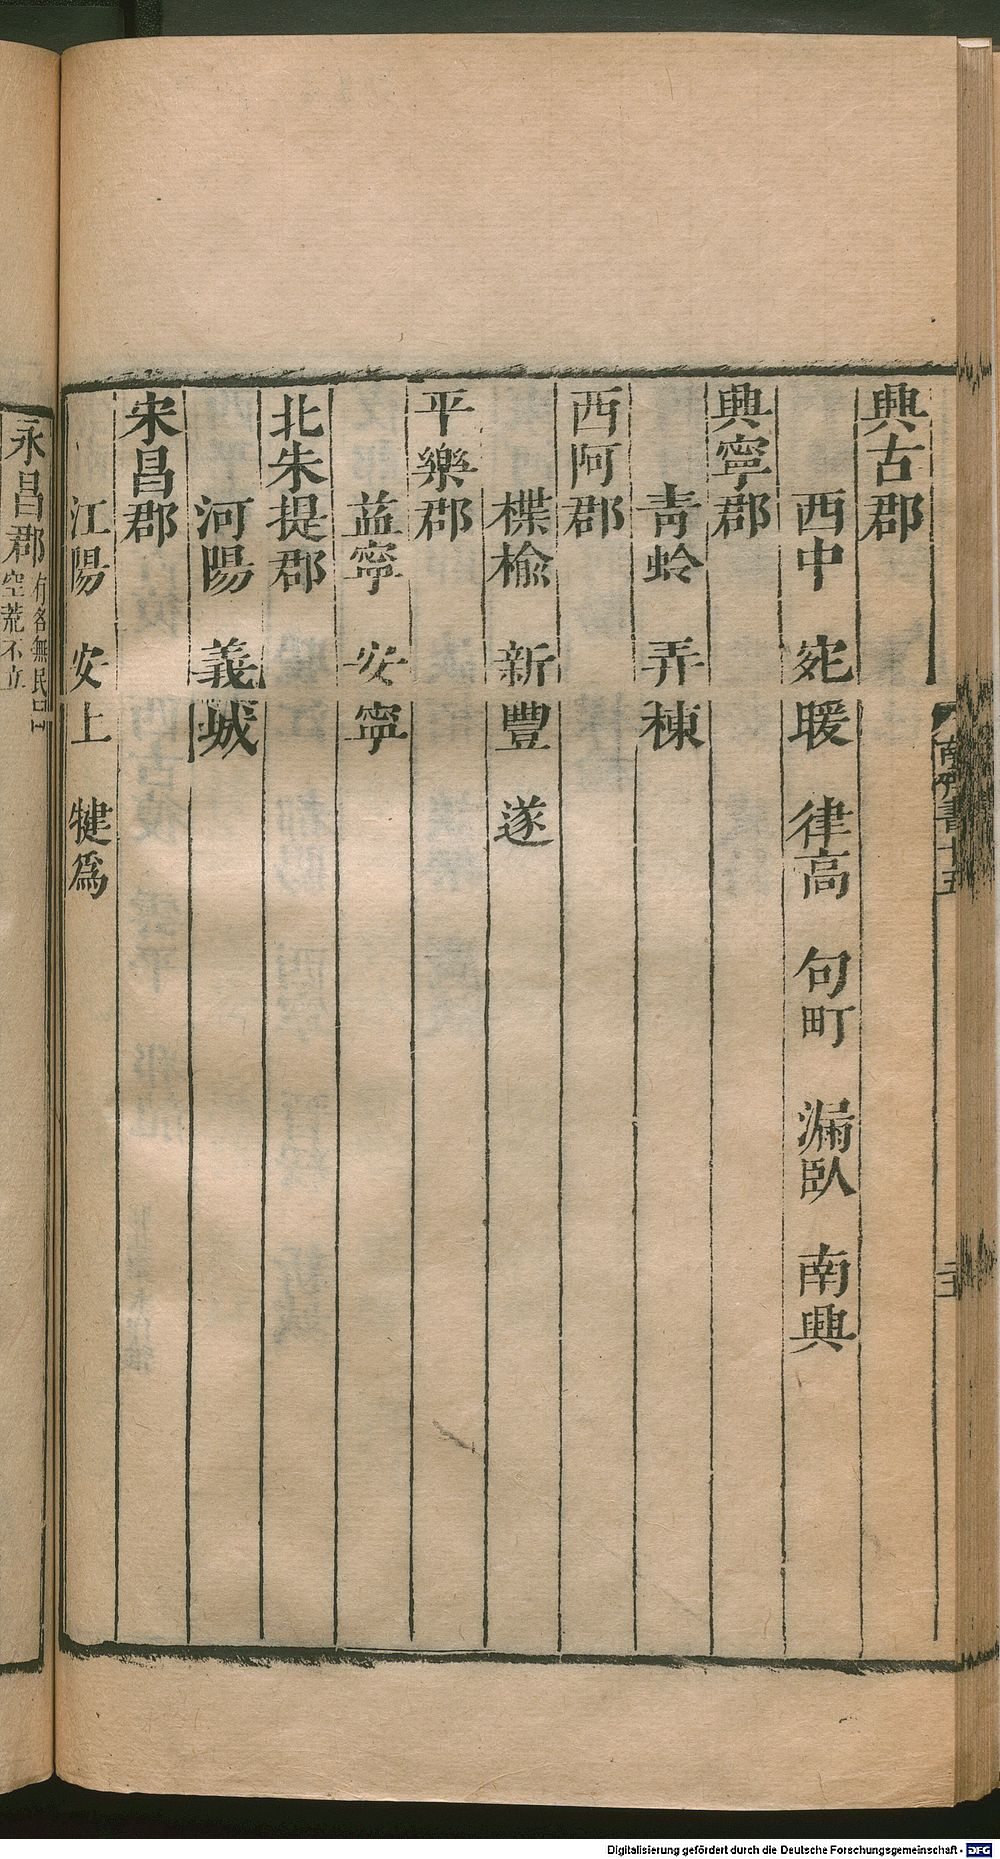 興古郡
西中　宛暖　律高　句町　漏臥　南興
興寧郡
青蛉　弄棟
西阿郡
楪楡　新豐　遂
平樂郡
益寧　安寧
北朱提郡
河陽　義城
宋昌郡
江陽　安上　犍爲
永昌郡 有名無民曰空荒不立
南齊書十五
Digitalisierung gefördert durch die Deutsche Forschungsgemeinschaft - DFG